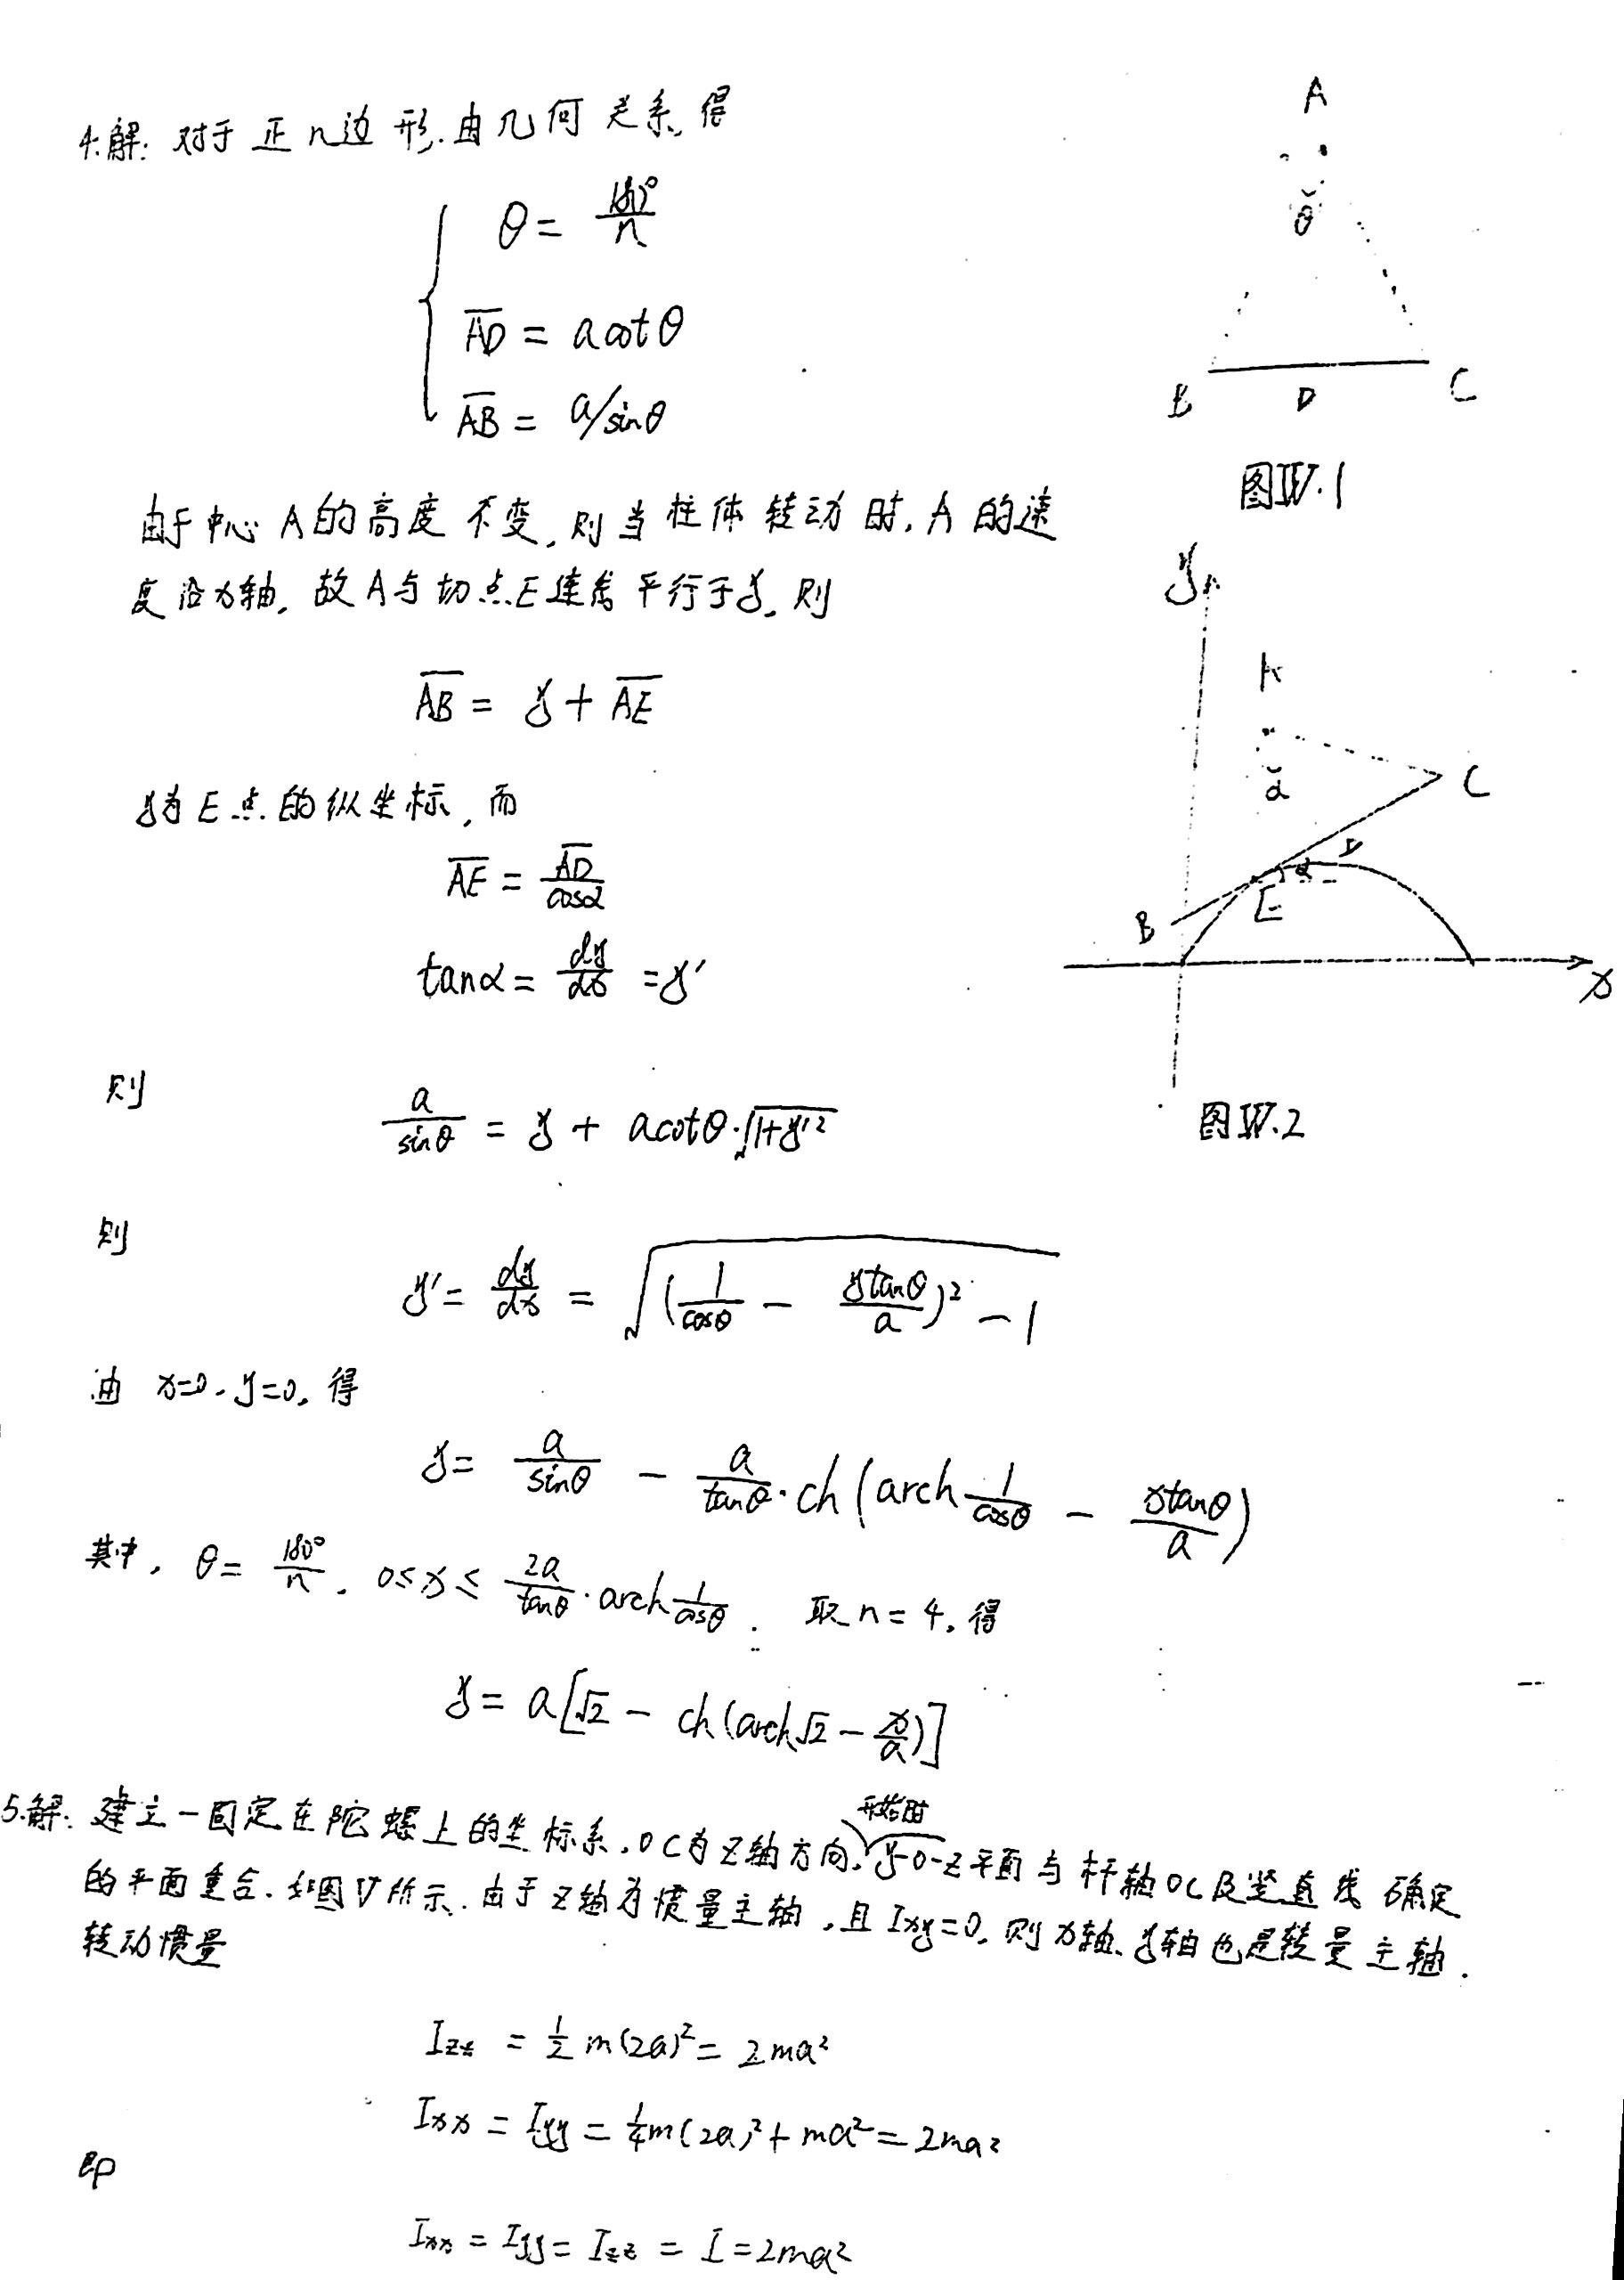 4.解: 对于正n边形.由几何关系,得
θ = 180°/n
AD = a cotθ
AB = a/sinθ
A
θ
B D C
图IV.1
由于中心A的高度不变,则当柱体转动时,A的速
度沿x轴,故A与切点E连线平行于y,则
AB = y + AE
y为E点的纵坐标,而
AE = AD/cosα
tanα = dy/dx = y'
y
A
α
C
D
α
E
B
x
图IV.2
则
a/sinθ = y + a cotθ·√(1+y'²)
则
y' = dy/dx = √((1/cosθ - ytanθ/a)² - 1)
由 x=0, y=0, 得
y = a/sinθ - a/tanθ · ch(arch 1/cosθ - xtanθ/a)
其中, θ = 180°/n, 0≤x≤ 2a/tanθ · arch 1/cosθ. 取n=4,得
y = a[√2 - ch(arch√2 - x/a)]
5.解: 建立一固定在陀螺上的坐标系,OC为z轴方向,开始时y-o-z平面与杆轴OC及竖直线确定
的平面重合.如图V所示.由于z轴为惯量主轴,且Ixy=0,则x轴、y轴也是转量主轴.
转动惯量
Izz = ½m(2a)² = 2ma²
Ixx = Iyy = ¼m(2a)² + ma² = 2ma²
即
Ixx = Iyy = Izz = I = 2ma²